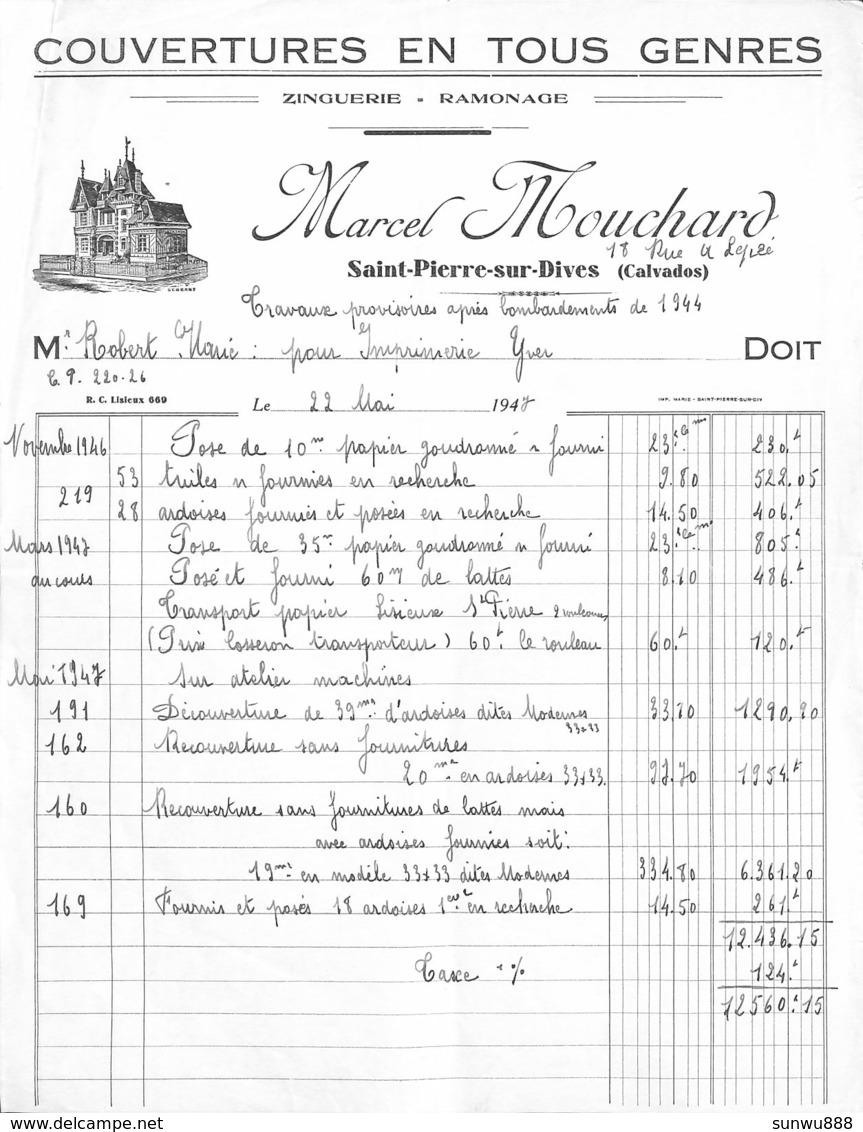 COUVERTURES EN TOUS GENRES
ZINGUERIE - RAMONAGE
Marcel Mouchard
18 Rue
Saint-Pierre-sur-Dives (Calvados)
Travaux provisoires après bombardements de 1944
Mr Robert Marie : pour Imprimerie Yver DOIT
C. P. 220-26
R. C. Lisieux 669 Le 22 Mai 1947 IMP. MARIE - SAINT-PIERRE-SUR-DIV
Novembre 1946 Pose de 10m papier goudronné n fourni 23 230.
53 tuiles n fournies en recherche 9.80 522.05
219
28 ardoises fournies et posées en recherche 14.50 406.
Mars 1947 Pose de 35m papier goudronné n fourni 23 805.
au cours Posé et fourni 60m de lattes 8.10 486.
Transport papier Lisieux St Pierre 2 rouleaux
(Prix Cosseron transporteur) 60f le rouleau 60. 120.
Mai 1947 sur atelier machines
191 Découverture de 39m d'ardoises dites Modernes 33x33 33,10 1290,90
162 Recouverture sans fournitures
20m en ardoises 33x33. 97.70 1954.
160 Recouverture sans fournitures de lattes mais
avec ardoises fournies soit:
19m en modèle 33x33 dites Modernes 334.80 6.361.20
169 Fournis et posés 18 ardoises en recherche 14.50 261.
12.436.15
Taxe 1% 124.
12560.15
sunwu888